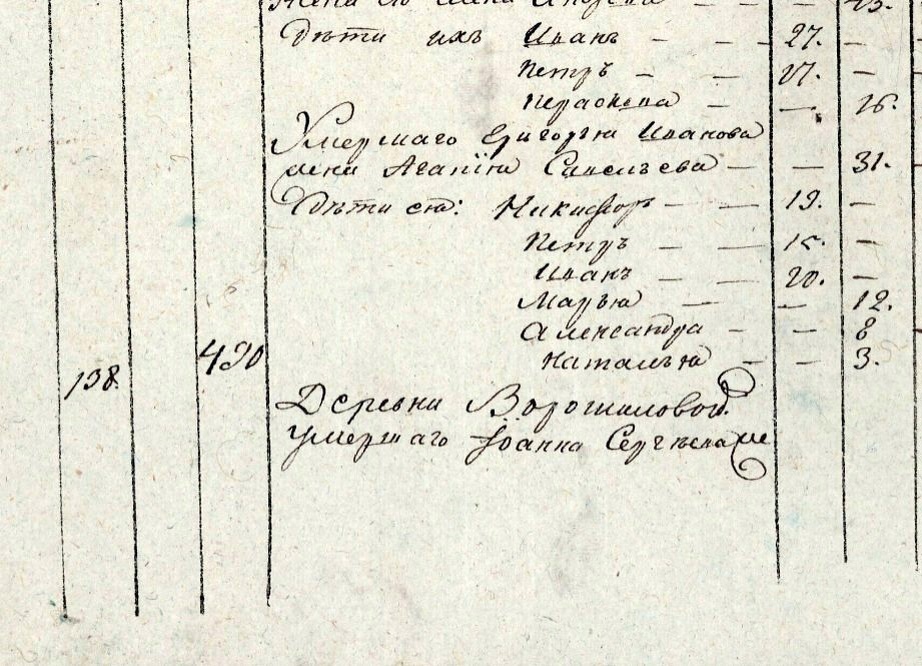 Дѣти ихъ Иванъ — — — 27. —
Петръ — — 17. —
Параскева — — 16.
Умершаго Григорья Иванова
жена Агапія Савельева — — 31.
Дѣти ея: Никифоръ — — 19. —
Петръ — — 15. —
Иванъ — — 20. —
Марья — — 12.
Александра — — 8
Наталья — — 3.
138. 490
Деревни Ворошиловой.
Умершаго Іоанна Сергѣева же